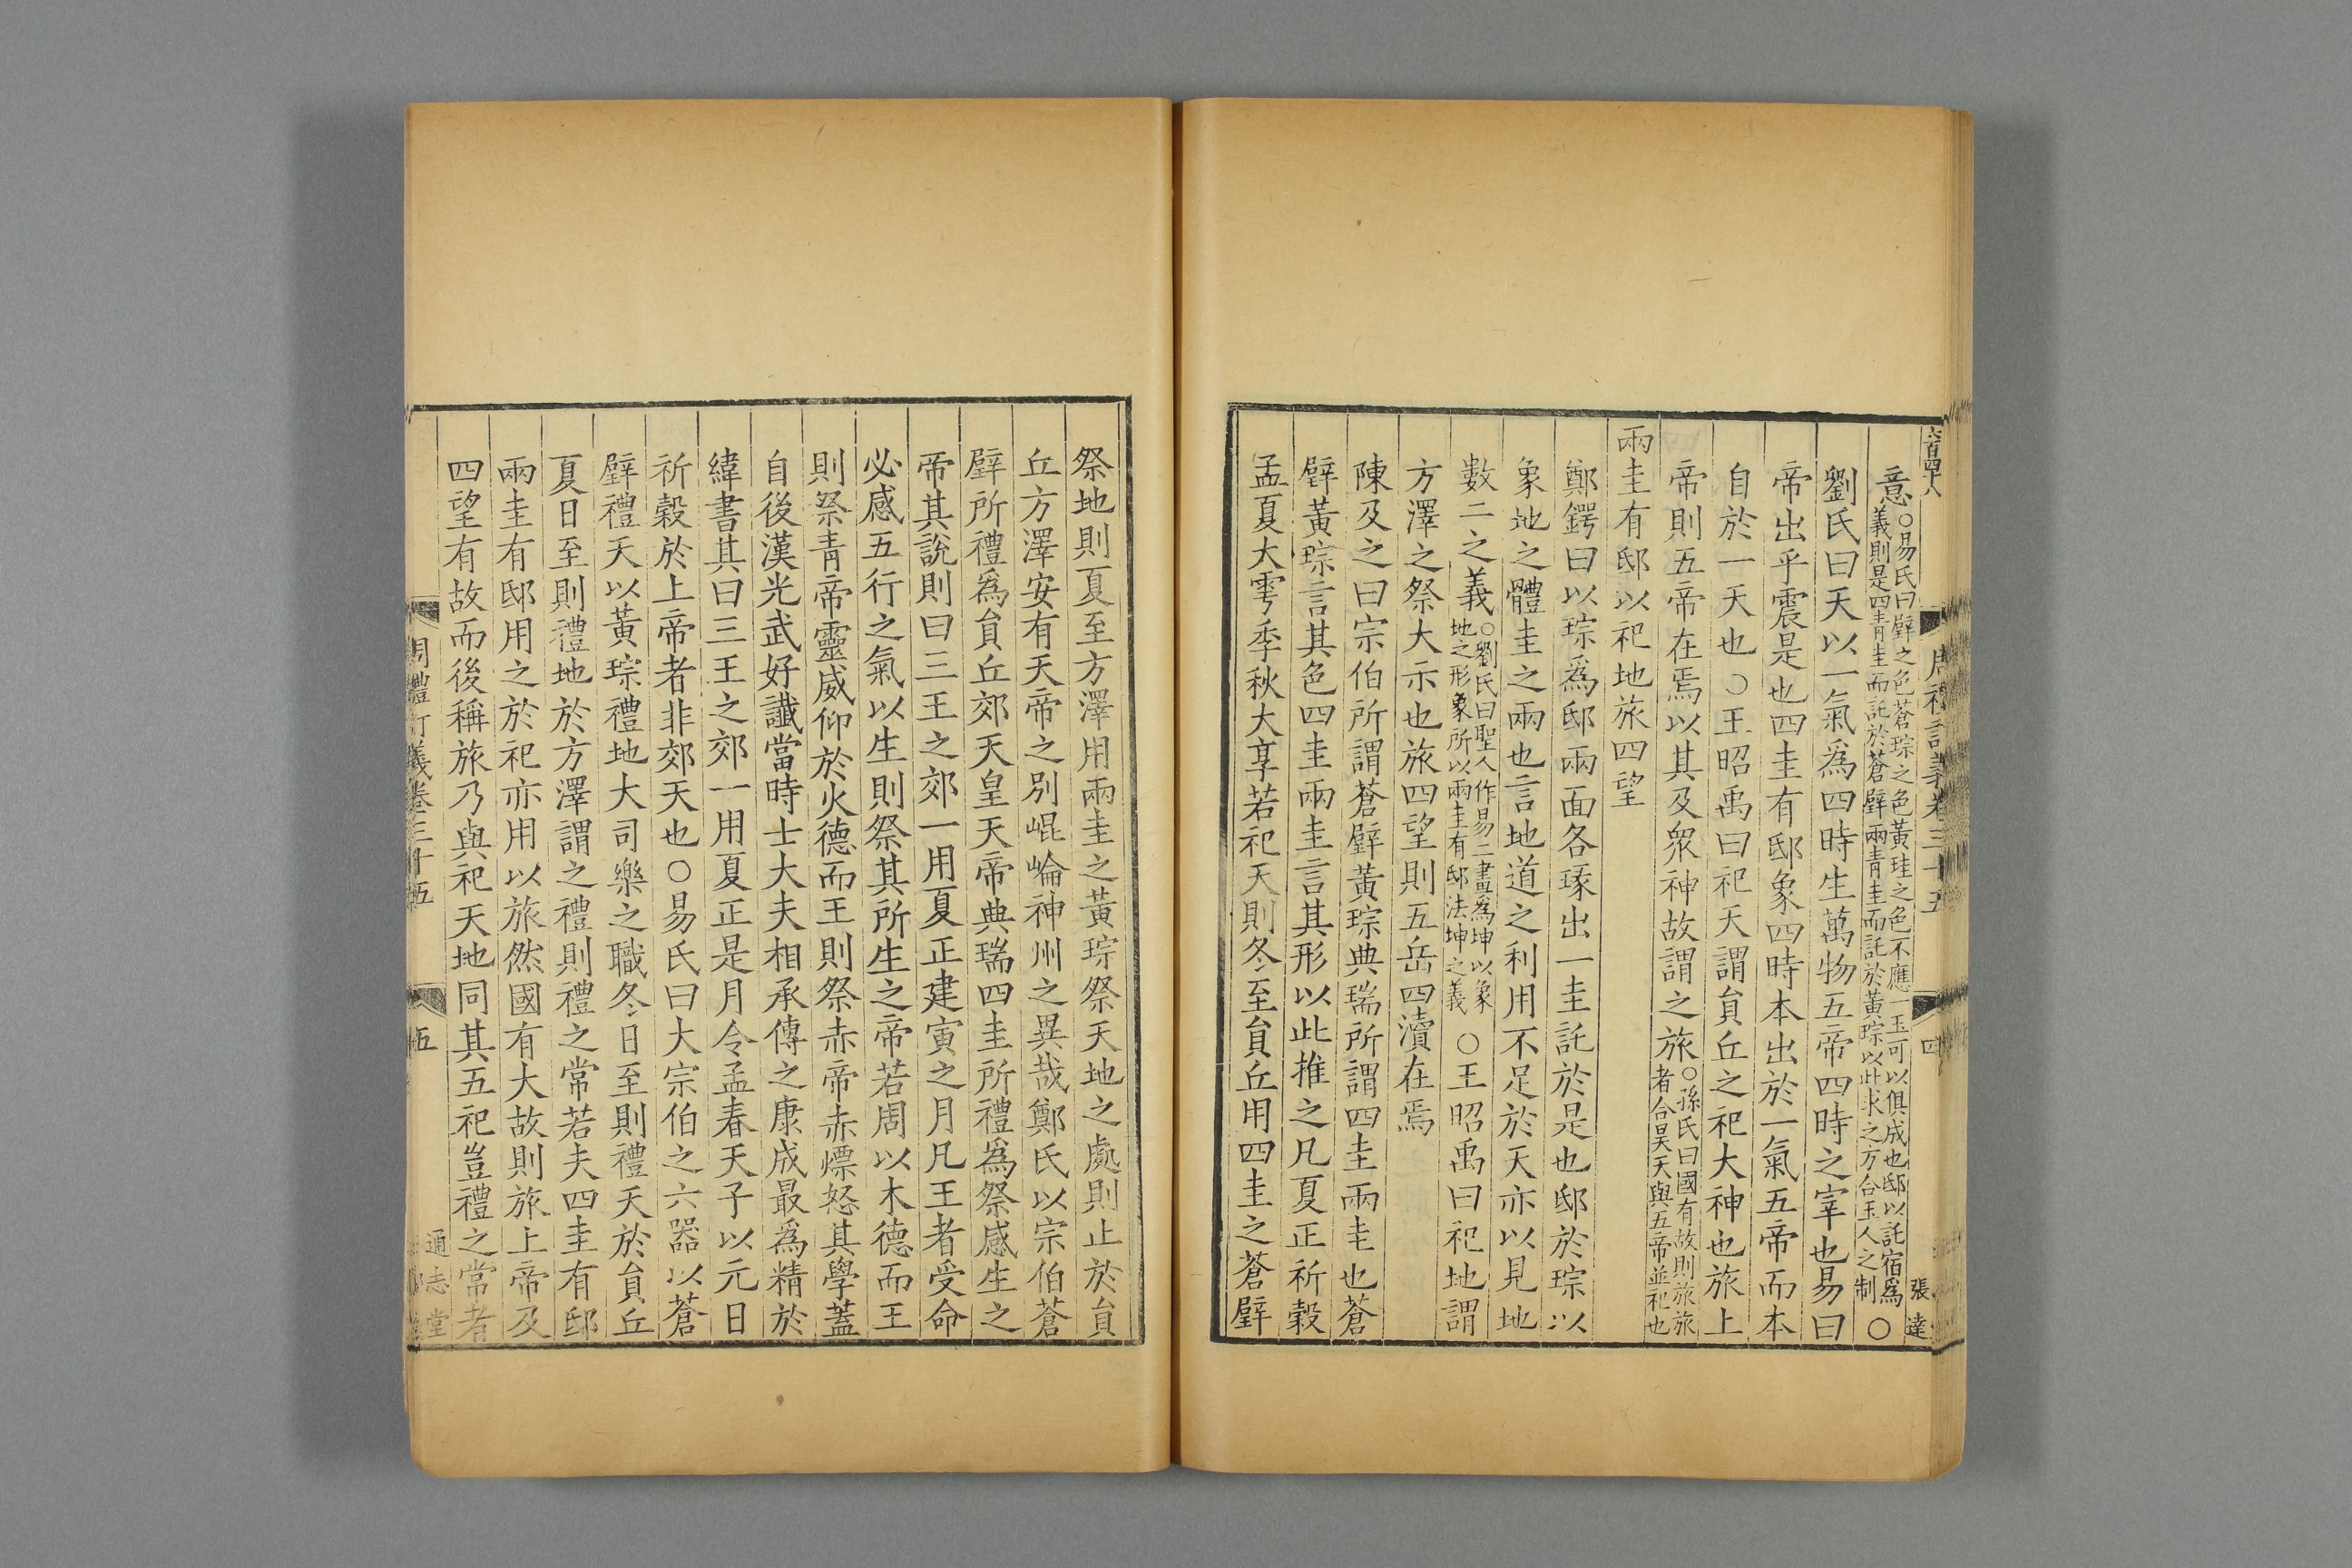 六百四十八
周禮訂義卷三十五
四
張達
意○易氏曰璧之色蒼琮之色黃珪之色不應一玉可以俱成也邸以託宿爲
義則是四青圭而託於蒼璧兩青圭而託於黃琮以此求之方合玉人之制○
劉氏曰天以一氣爲四時生萬物五帝四時之宰也易曰
帝出乎震是也四圭有邸象四時本出於一氣五帝而本
自於一天也○王昭禹曰祀天謂員丘之祀大神也旅上
帝則五帝在焉以其及衆神故謂之旅○孫氏曰國有故則旅旅
者合昊天與五帝並祀也
兩圭有邸以祀地旅四望
鄭鍔曰以琮爲邸兩面各琢出一圭託於是也邸於琮以
象地之體圭之兩也言地道之利用不足於天亦以見地
數二之義○劉氏曰聖人作易二畫爲坤以象
地之形象所以兩圭有邸法坤之義○王昭禹曰祀地謂
方澤之祭大示也旅四望則五岳四瀆在焉
陳及之曰宗伯所謂蒼璧黃琮典瑞所謂四圭兩圭也蒼
璧黃琮言其色四圭兩圭言其形以此推之凡夏正祈穀
孟夏大雩季秋大享若祀天則冬至員丘用四圭之蒼璧
祭地則夏至方澤用兩圭之黃琮祭天地之處則止於員
丘方澤安有天帝之別崐崘神州之異哉鄭氏以宗伯蒼
璧所禮爲員丘郊天皇天帝典瑞四圭所禮爲祭感生之
帝其說則曰三王之郊一用夏正建寅之月凡王者受命
必感五行之氣以生則祭其所生之帝若周以木德而王
則祭青帝靈威仰於火德而王則祭赤帝赤熛怒其學蓋
自後漢光武好讖當時士大夫相承傳之康成最爲精於
緯書其曰三王之郊一用夏正是月令孟春天子以元日
祈穀於上帝者非郊天也○易氏曰大宗伯之六器以蒼
璧禮天以黃琮禮地大司樂之職冬日至則禮天於員丘
夏日至則禮地於方澤謂之禮則禮之常若夫四圭有邸
兩圭有邸用之於祀亦用以旅然國有大故則旅上帝及
四望有故而後稱旅乃與祀天地同其五祀豈禮之常者
周禮訂義卷三十五
五
通志堂